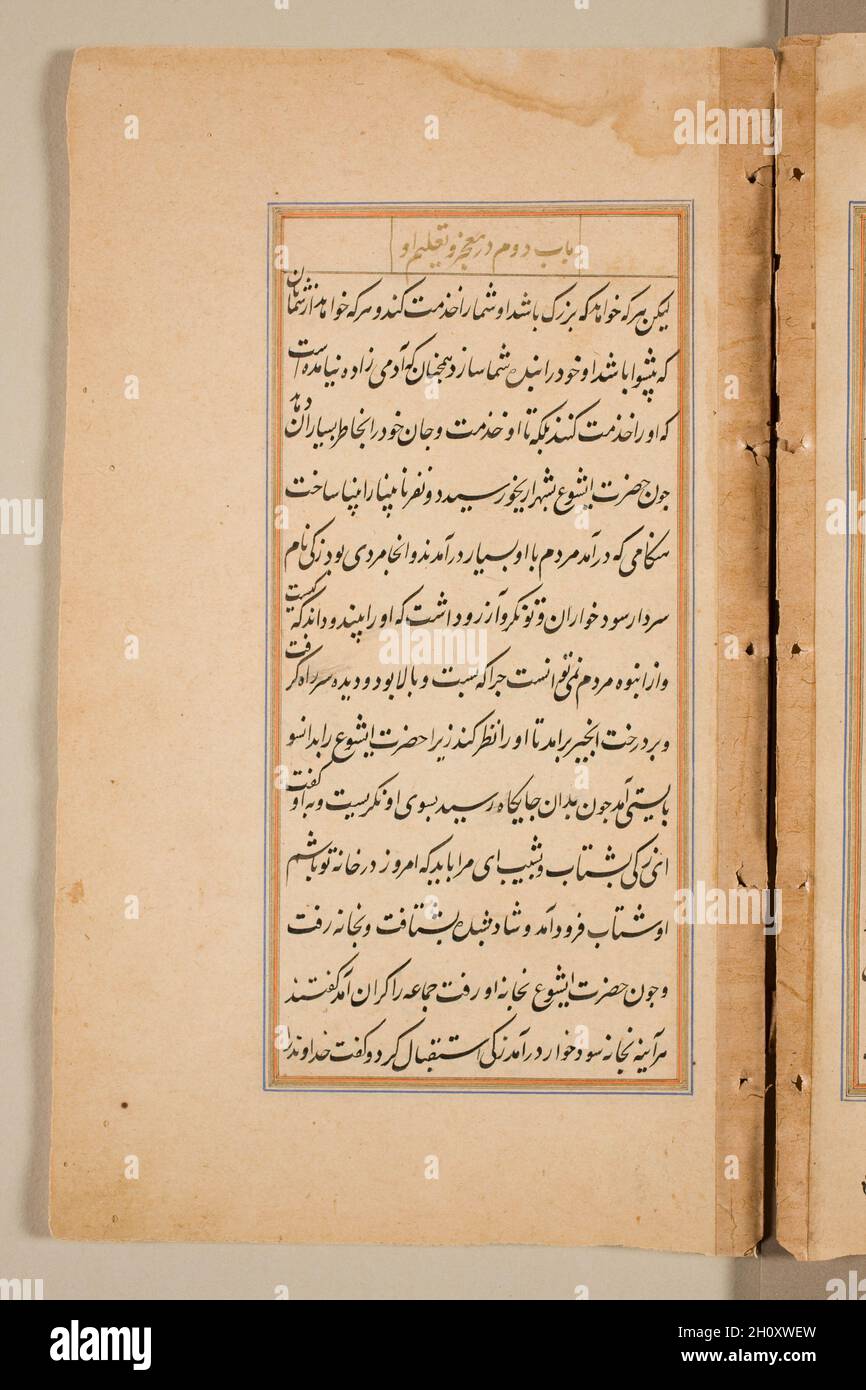 باب دوم در معجز و تعلیم او
لیکن هرکه خواهد که بزرک باشد او شما را خدمت کند و هرکه خواهد از شمایان
که پیشوا باشد او خود را بنده شما سازد همچنان که آدمی زاده نیامده است
که او را خدمت کنند بلکه تا او خدمت و جان خود را بخاطر بسیاران دهد
جون حضرت ایشوع بشهر اریخو رسید دو نفر نابینا را بینا ساخت
هنکامی که درآمد مردم با او بسیار درآمدند و انجا مردی بود زکی نام
سردار سودخواران و تونکر و آرزو داشت که او را ببیند و داند که کیست
و از انبوه مردم نمی توانست جرا که پست و بالا بود و دیده سر راه کرفت
و بر درخت انجیر برامد تا او را نظر کند زیرا حضرت ایشوع را بدانسو
بایستی آمد جون بدان جایکاه رسید بسوی او نکریست و به او کفت
ای زکی بشتاب و بشیب ای مرا باید که امروز در خانه تو باشم
او شتاب فرود آمد و شاد شده بشتافت و بخانه رفت
و جون حضرت ایشوع بخانه او رفت جماعه را کران آمد کفتند
هرآینه بخانه سودخوار درآمد زکی استقبال کرد و کفت خداوندا
alamy
Image ID: 2H0XWEW
www.alamy.com